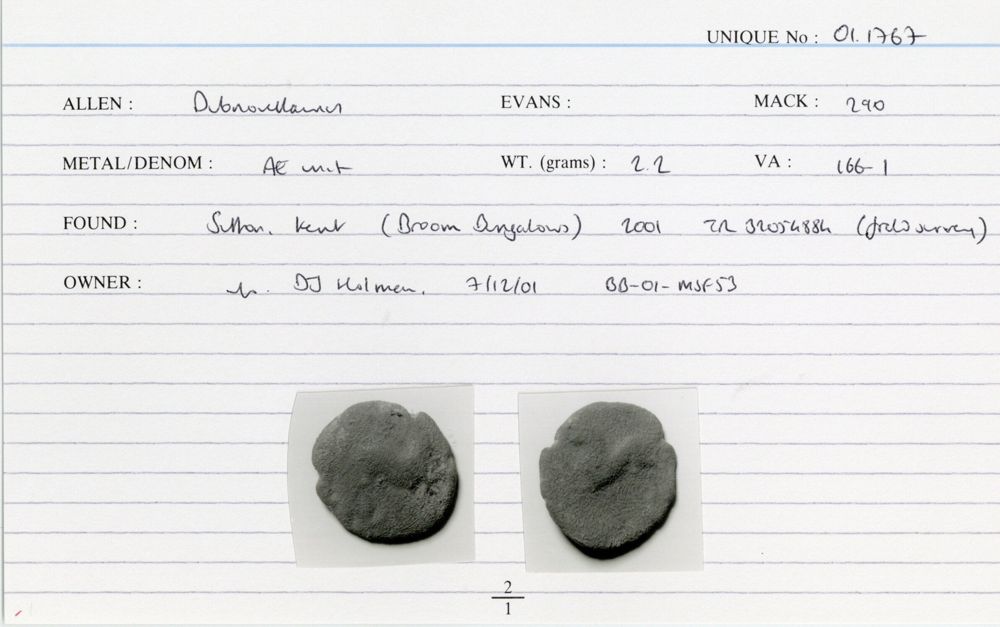 UNIQUE No : 01.1767
ALLEN : Dubnovellaunus EVANS : MACK : 290
METAL/DENOM : AE unit WT. (grams) : 2.2 VA : 166-1
FOUND : Sutton, Kent (Broom Bungalows) 2001 TR 32054884 (field survey)
OWNER : DJ Holman, 7/12/01 BB-01-MSF53
2
1